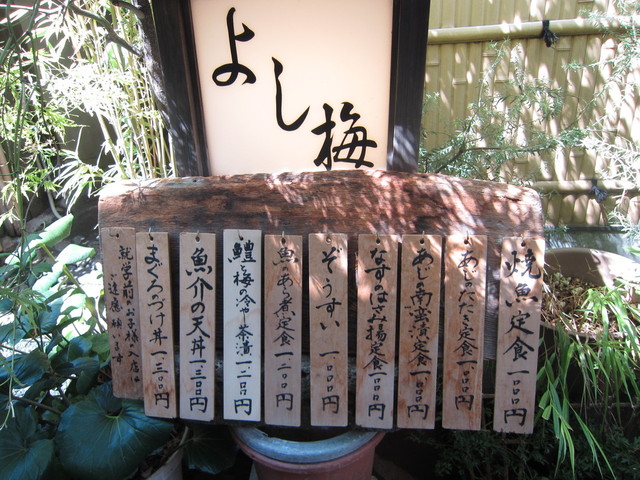 よし梅
焼魚定食 一〇〇〇円
あじのたたき定食 一〇〇〇円
あじの南蛮漬定食 一〇〇〇円
なすのはさみ揚定食 一〇〇〇円
ぞうすい 一〇〇〇円
魚のあら煮定食 一二〇〇円
鱧と梅の冷やし茶漬 一二〇〇円
魚介の天丼 一三〇〇円
まぐろづけ丼 一三〇〇円
就学前のお子様の入店は
ご遠慮願います